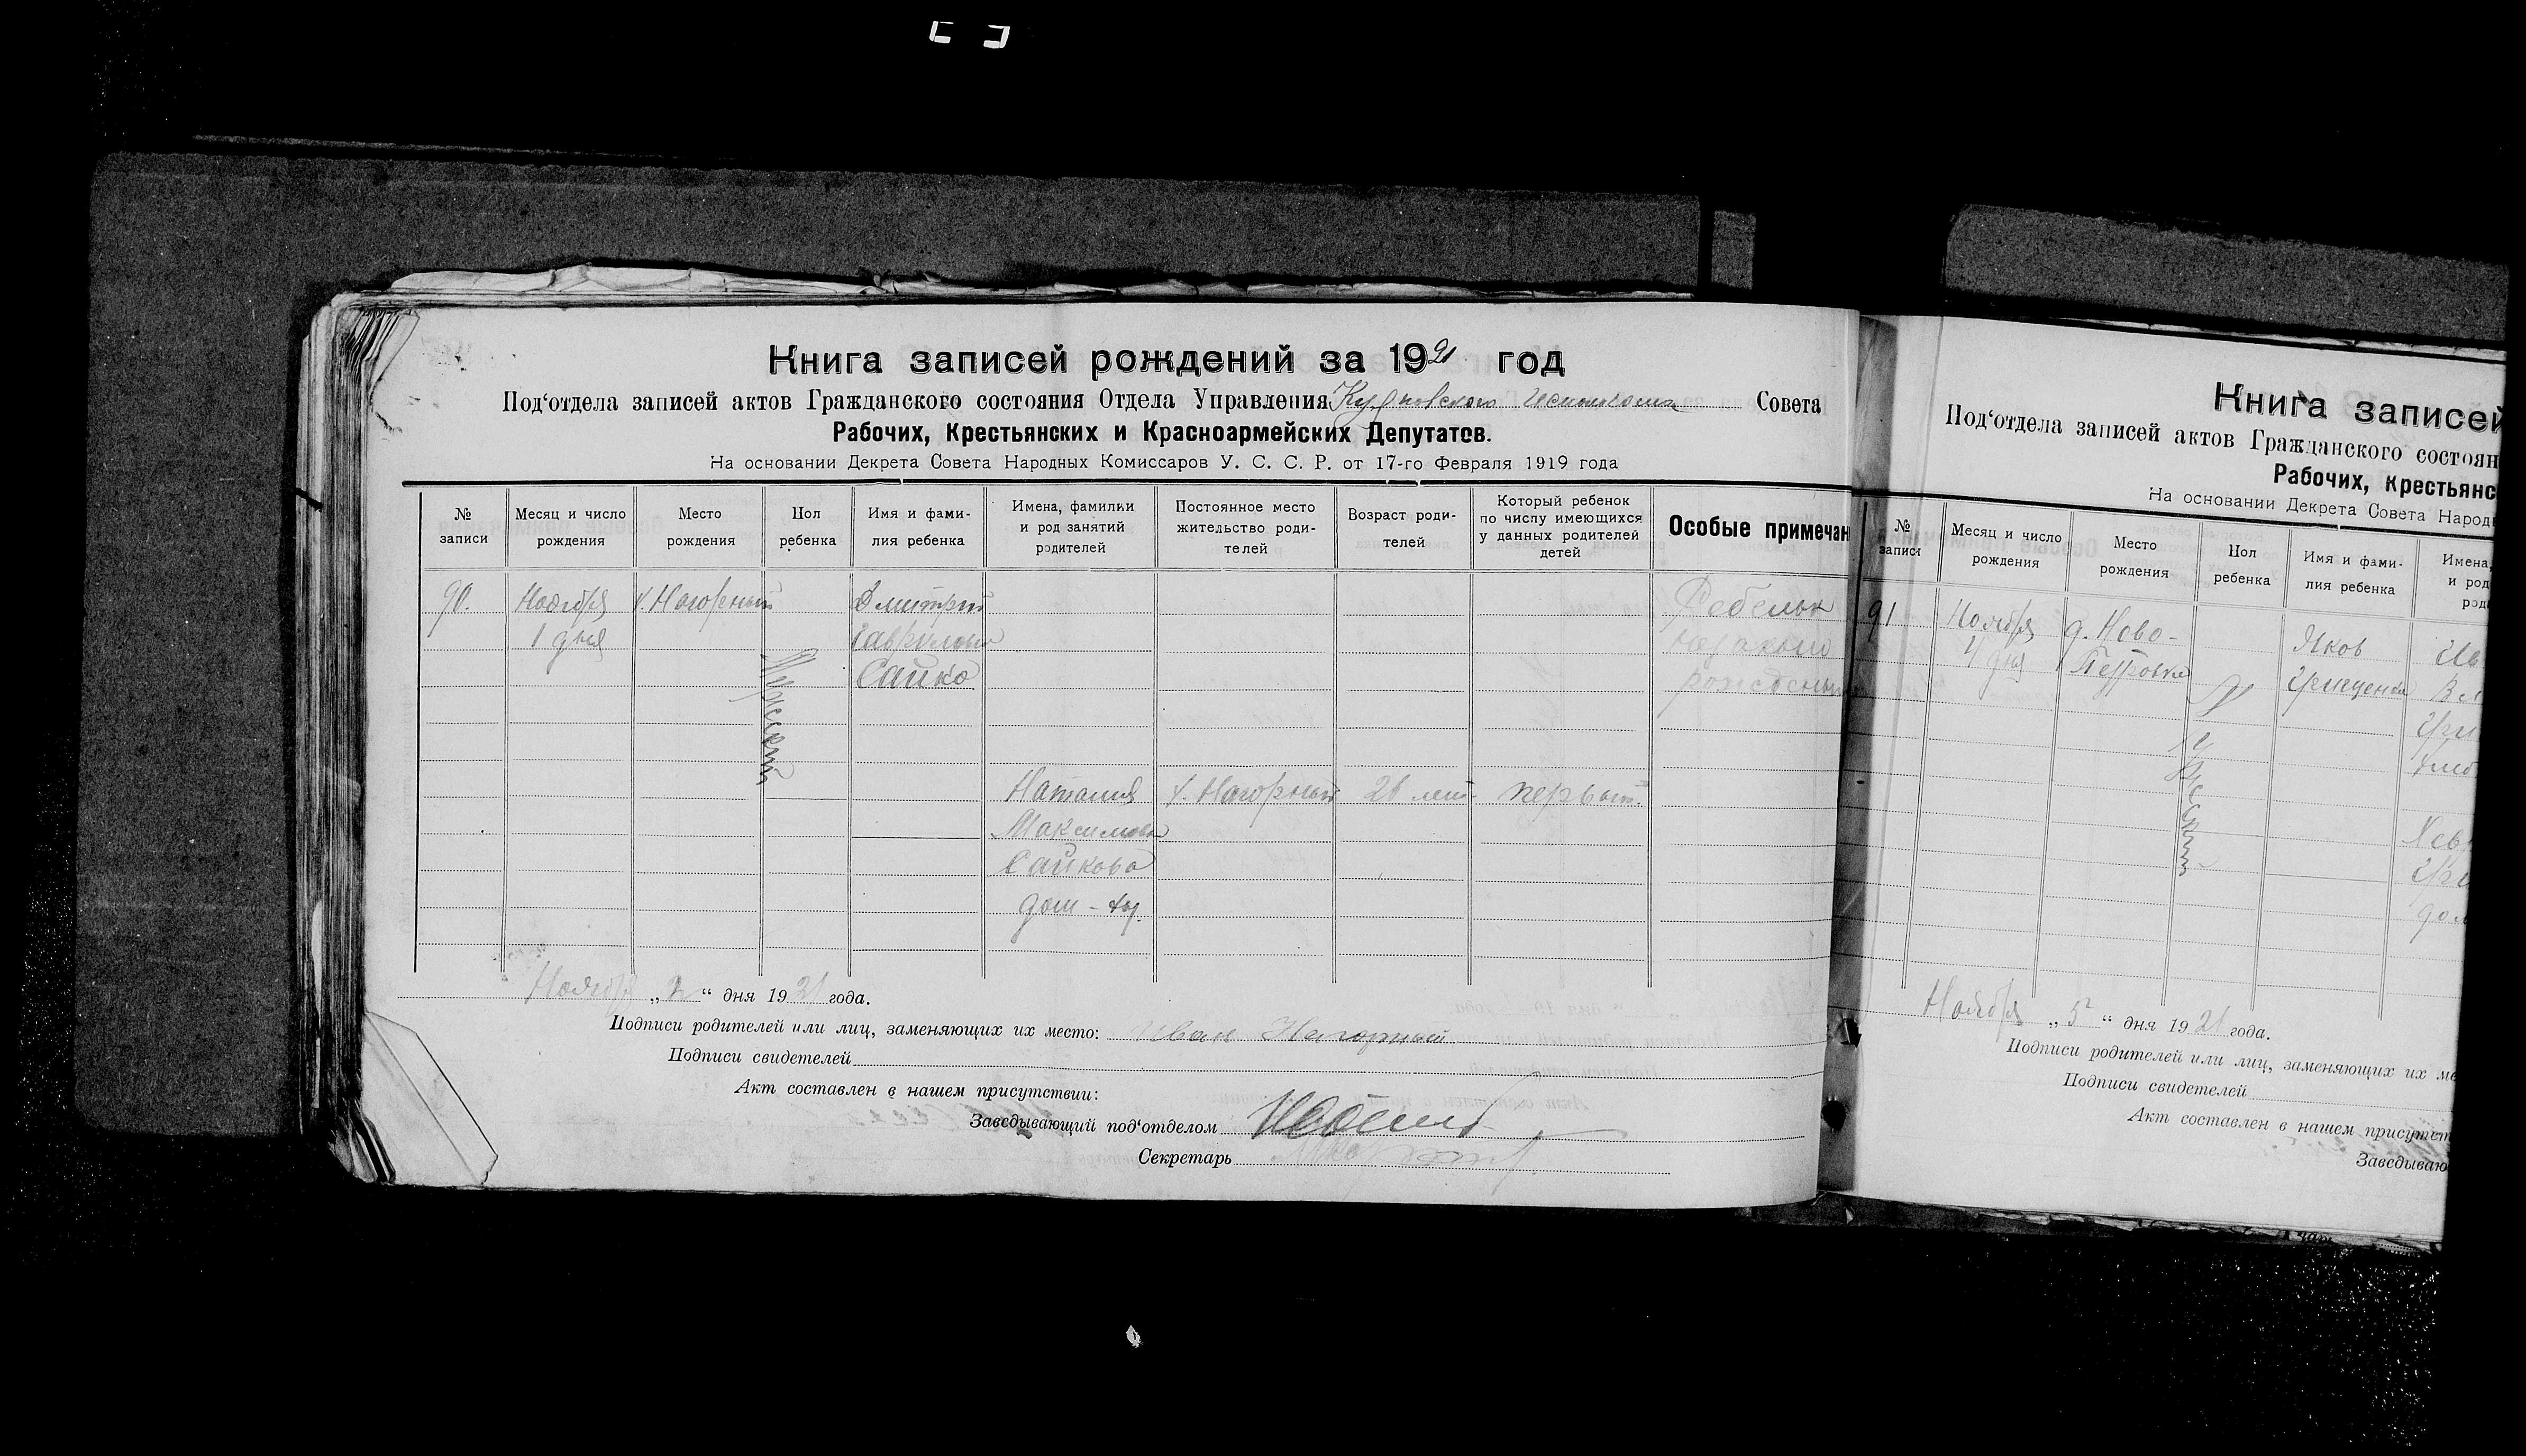 Книга записей рождений за 1921 год
Под‘отдела записей актов Гражданского состояния Отдела Управления Совета
Рабочих, Крестьянских и Красноармейских Депутатов.
На основании Декрета Совета Народных Комиссаров У. С. С. Р. от 17-го Февраля 1919 года
№ записи
Месяц и число рождения
Место рождения
Пол ребенка
Имя и фами-
лия ребенка
Имена, фамилии
и род занятий
родителей
Постоянное место
жительство роди-
телей
Возраст роди-
телей
Который ребенок
по числу имеющихся
у данных родителей
детей
Особые примечан
90.
Ноября
1 дня
х. Нагорный
Мужской
Дмитрий
Сайко
Наталия
Максимова
Сайкова
дом-
х. Нагорный
первый.
Ребенок
рожденный
Ноября „2“ дня 1921 года.
Подписи родителей или лиц, заменяющих их место: Иван Нагорный
Подписи свидетелей
Акт составлен в нашем присутствии:
Заведывающий под‘отделом
Секретарь
Книга записей
Под‘отдела записей актов Гражданского состоян
Рабочих, Крестьянс
На основании Декрета Совета Народн
№ записи
Месяц и число
рождения
Место
рождения
Пол
ребенка
Имя и фами-
лия ребенка
Имена,
и род
род
91
Ноября
4 дня
д. Ново-
Петровка
Мужской
Яков
Грищенко
Ноября „5“ дня 1921 года.
Подписи родителей или лиц, заменяющих их ме
Подписи свидетелей
Акт составлен в нашем присутст
Заведываю